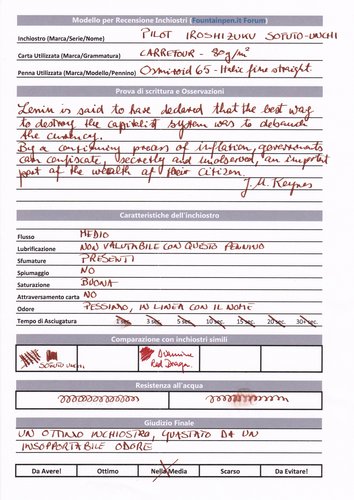 Modello per Recensione Inchiostri (Fountainpen.it Forum)
Inchiostro (Marca/Serie/Nome) PILOT IROSHIZUKU SOTUTO-UNCHI
Carta Utilizzata (Marca/Grammatura) CARREFOUR - 80g/m²
Penna Utilizzata (Marca/Modello/Pennino) Osmiroid 65 - Italic fine straight
Prova di scrittura e Osservazioni
Lenin is said to have declared that the best way
to destroy the capitalist system was to debauch
the currency.
By a continuing process of inflation, governments
can confiscate, secretly and unobserved, an important
part of the wealth of their citizen.
J. M. Keynes
Caratteristiche dell'inchiostro
Flusso MEDIO
Lubrificazione NON VALUTABILE CON QUESTO PENNINO
Sfumature PRESENTI
Spiumaggio NO
Saturazione BUONA
Attraversamento carta NO
Odore PESSIMO, IN LINEA CON IL NOME
Tempo di Asciugatura 1 sec. 3 sec. 5 sec. 10 sec. 15 sec. 20 sec. 30+ sec.
Comparazione con inchiostri simili
SOTUTO-UNCHI Diamine
Red Dragon
Resistenza all'acqua
Giudizio Finale
UN OTTIMO INCHIOSTRO, GUASTATO DA UN
INSOPPORTABILE ODORE
Da Avere! Ottimo Nella Media Scarso Da Evitare!